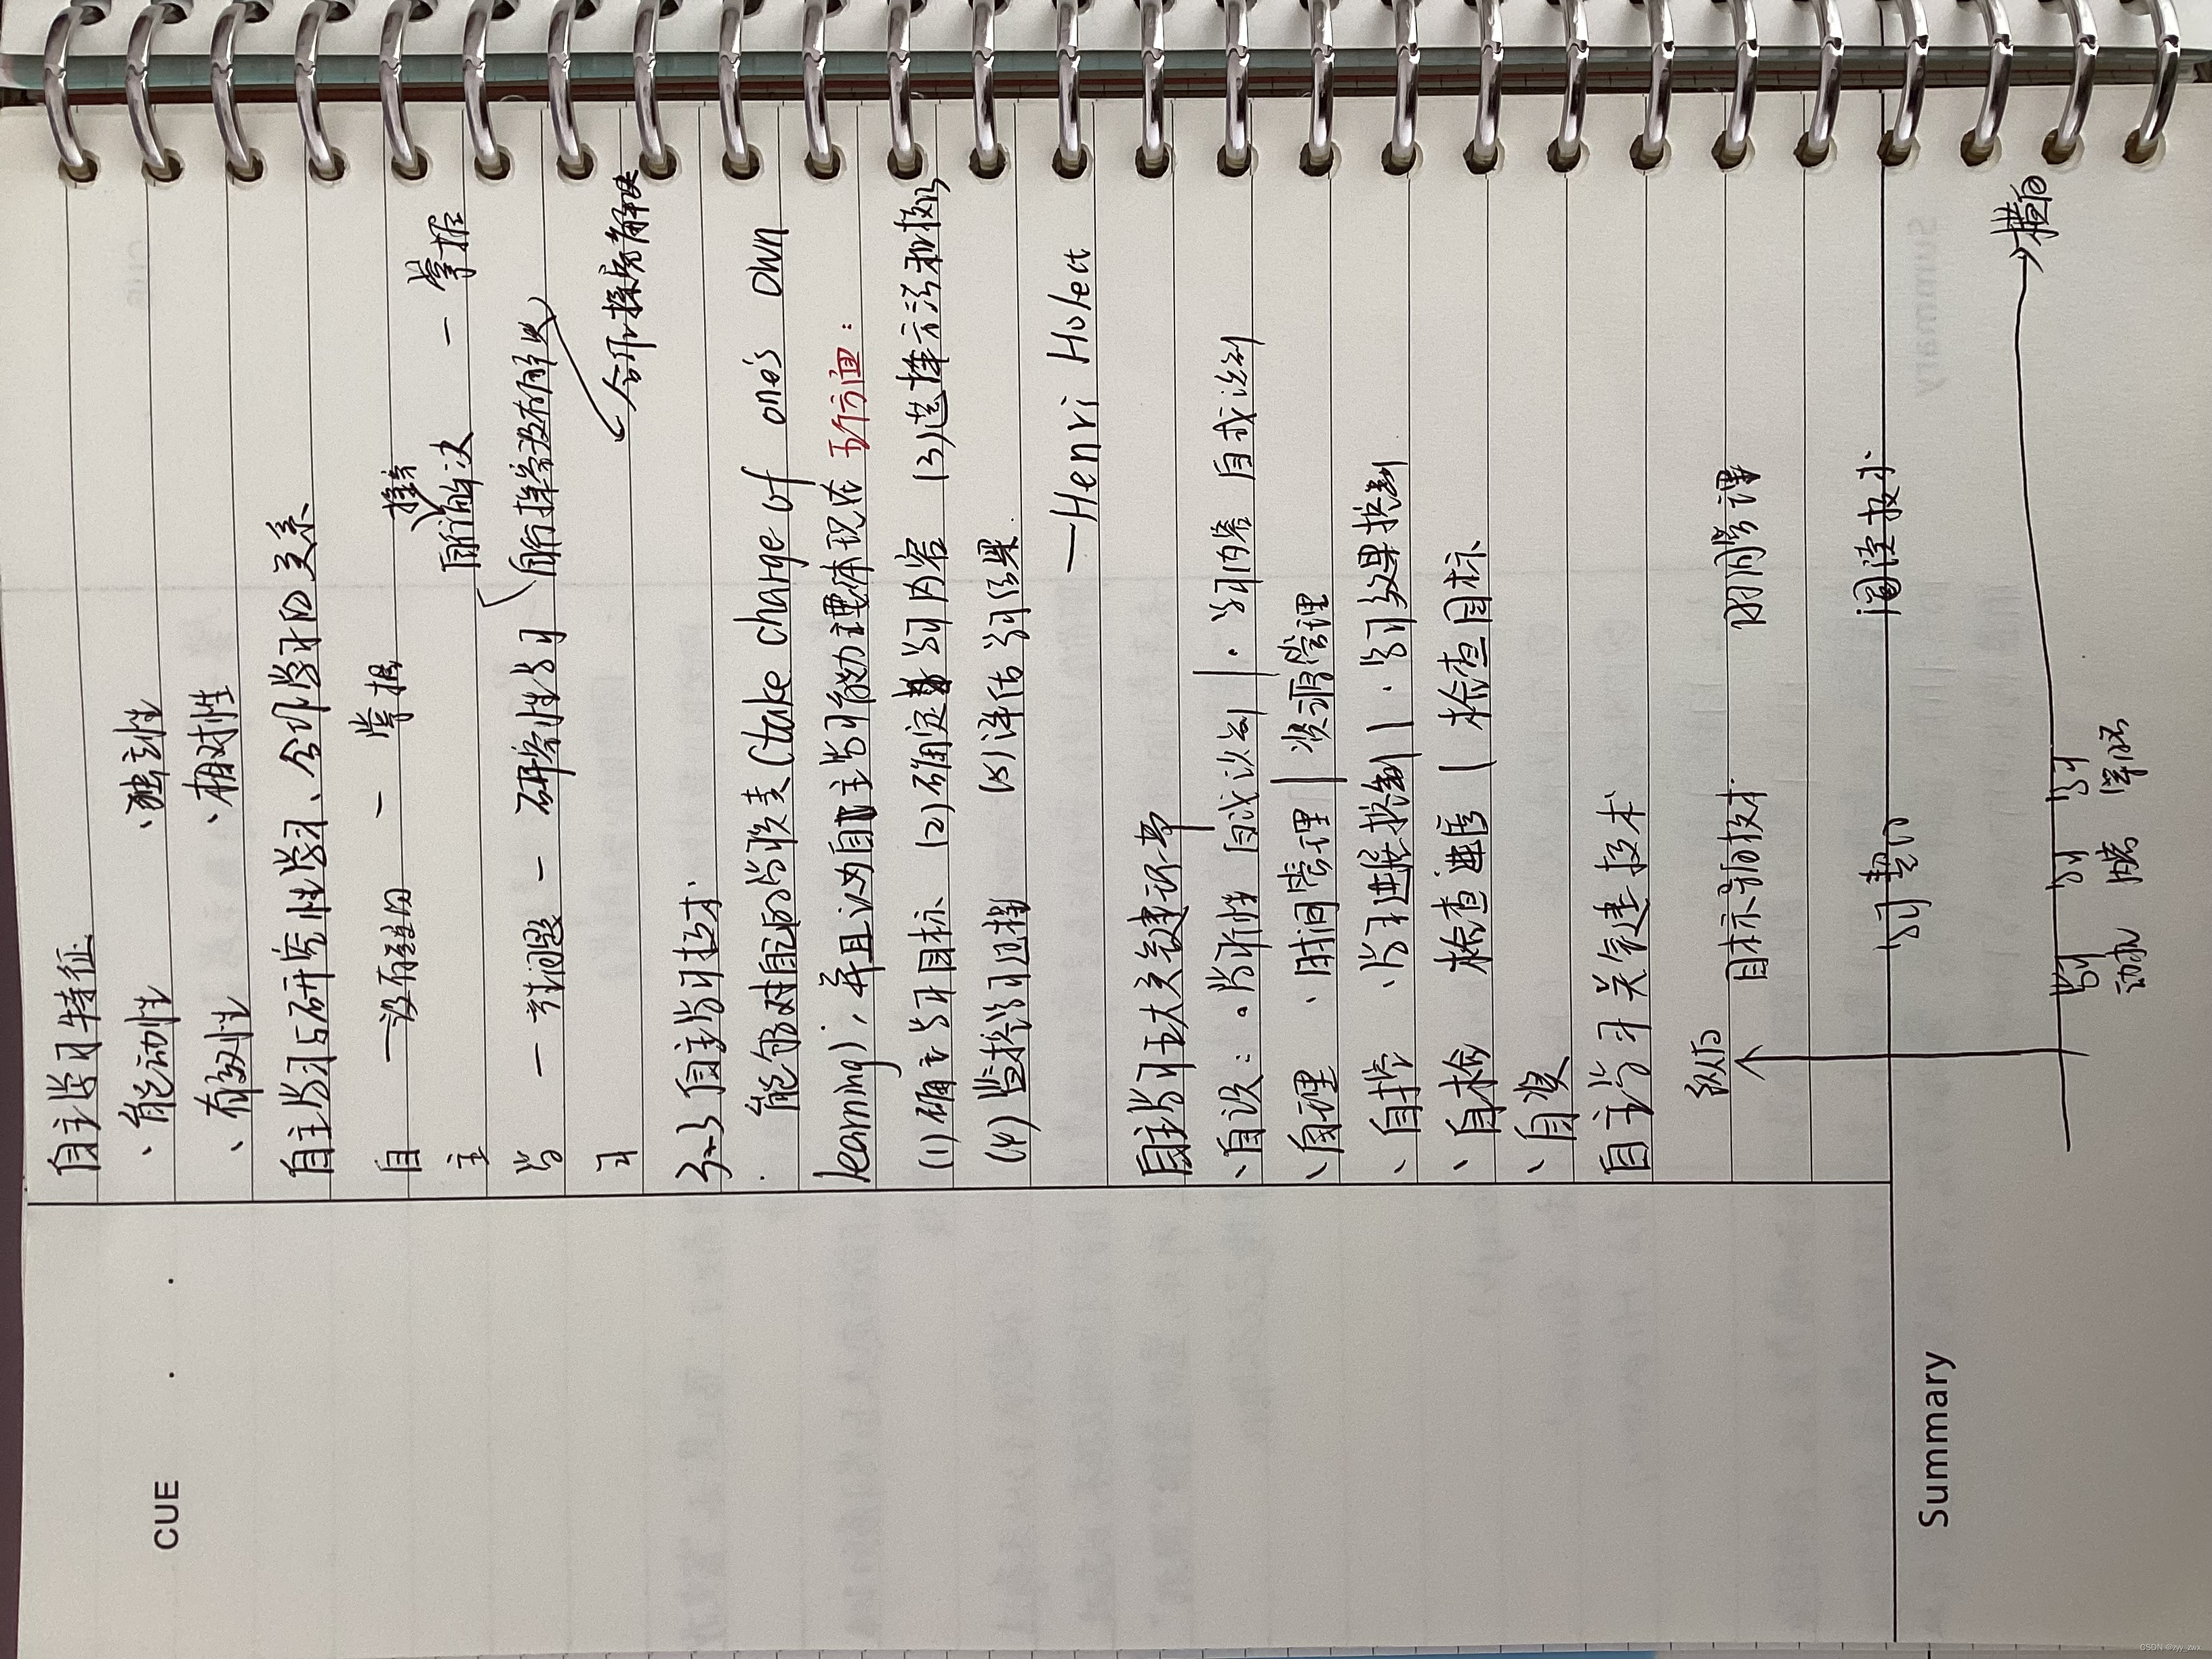 CUE
自主学习特征
·能动性 ·独立性
·有效性 ·相对性
自主学习与研究性学习、合作学习的关系
自主学习
— 没有疑问 — 掌握
— 有问题 — 研究性学习
自行解决 — 掌握
自行探究没有解决
合作探究解决
3-3 自主学习技术
能够对自己的学习负责(take charge of one's own
learning), 并且认为自主学习能力主要体现在 五个方面:
(1)确立学习目标 (2)确定学习内容 (3)选择方法和技巧
(4)监控学习过程 (5)评估学习结果.
—Henri Holect
自主学习五大关键环节
·自设: ·学习 自我计划 | ·学习内容 自我计划
·自理 ·时间管理 | 资源管理
·自控 ·学习进展控制 | ·学习效果控制
·自检 检查进度 | 检查目标
·自奖
自主学习关键技术
纵向
目标 时间管理
学习契约 阅读技术
横向
学习动机 学习 学习评估
Summary
CSDN @zyy_zwx